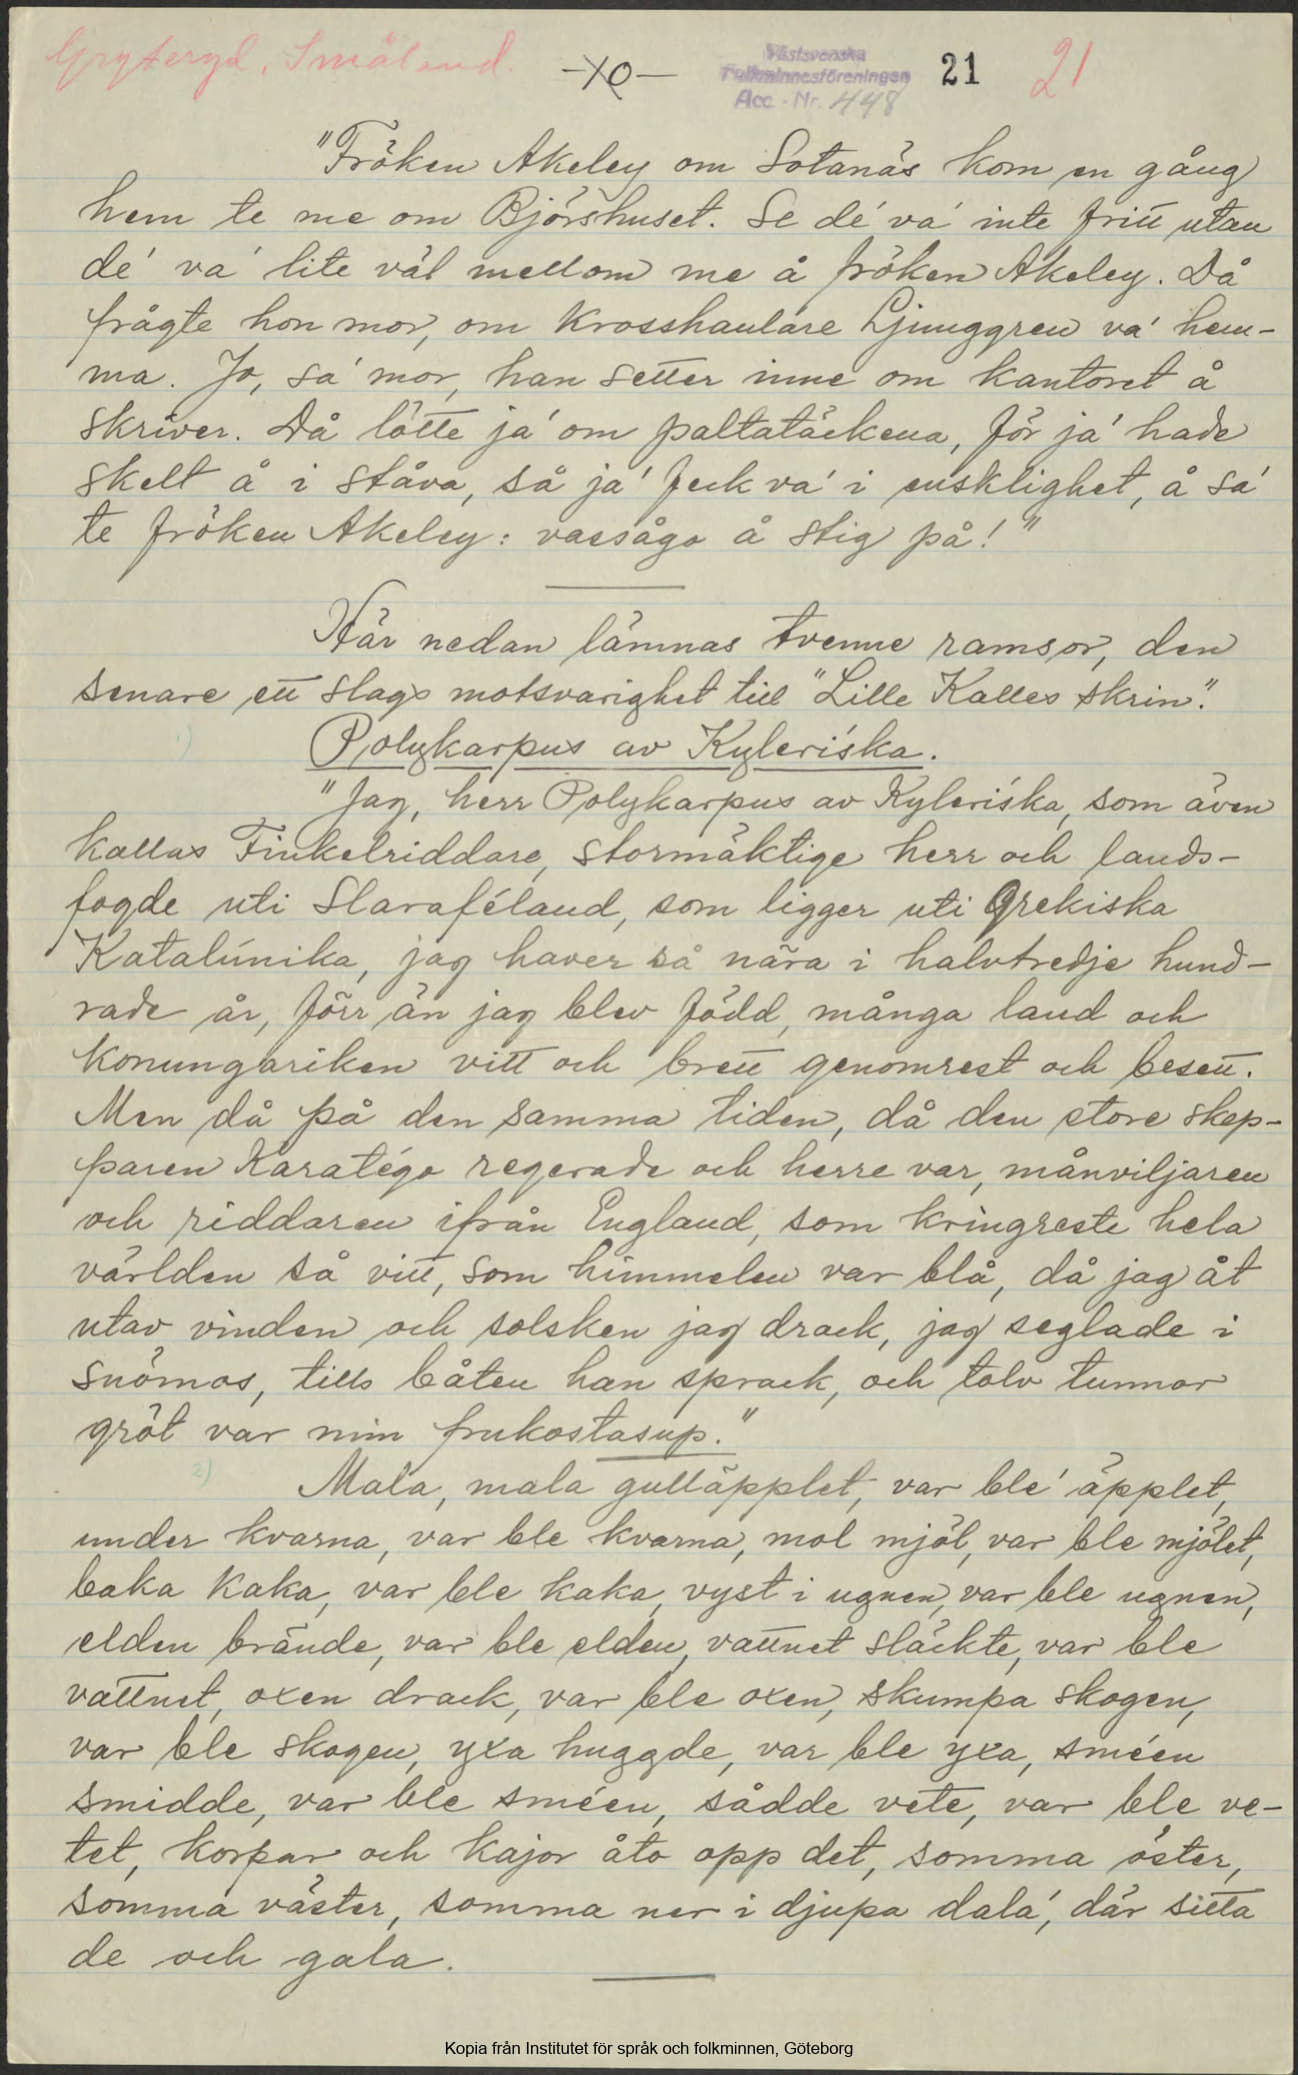 Gryteryd, Småland.
-10-
Västsvenska
Folkminnesföreningen
Acc.-Nr. 448
21
21
"Fröken Akeley om Sotanäs kom en gång
hem te me om Björshuset. Se dé vá inte fritt utan
dé vá lite väl mellom me å fröken Akeley. Då
frågte hon mor, om krosshanlare Ljunggren vá hem-
ma. Jo, sá mor, han setter inne om kantoret å
skriver. Då lötte já om paltatäckena, för já hade
skelt å i ståva, så já feck vá i ensklighet, å sá
te fröken Akeley: vassågo å stig på!"
Här nedan lämnas tvenne ramsor, den
senare ett slags motsvarighet till "Lille Kalles skrin".
1)
Polykarpus av Kyleríska.
"Jag, herr Polykarpus av Kyleríska, som även
kallas Finkelriddare, stormäktige herr och lands-
fogde uti Slaraféland, som ligger uti Grekiska
Katalúnika, jag haver så nära i halvtredje hund-
rade år, förr än jag blev född, många land och
konungariken vitt och brett genomrest och besett.
Men då på den samma tiden, då den store skep-
paren Karatégo regerade och herre var, månviljaren
och riddaren ifrån England, som kringreste hela
världen så vitt, som himmelen var blå, då jag åt
utav vinden och solsken jag drack, jag seglade i
snömos, tills båten han sprack, och tolv tunnor
gröt var min frukostasup."
2)
Mala, mala gulläpplet, var blé äpplet,
under kvarna, var ble kvarna, mol mjöl, var ble mjölet,
baka kaka, var ble kaka, vyst i ugnen, var ble ugnen,
elden brände, var ble elden, vattnet släckte, var ble
vattnet, oxen drack, var ble oxen, skumpa skogen,
var ble skogen, yxa huggde, var ble yxa, sméen
smidde, var ble sméen, sådde vete, var ble ve-
tet, korpar och kajor åto opp det, somma öster,
somma väster, somma ner i djupa dalá, där sitta
de och gala.
Kopia från Institutet för språk och folkminnen, Göteborg